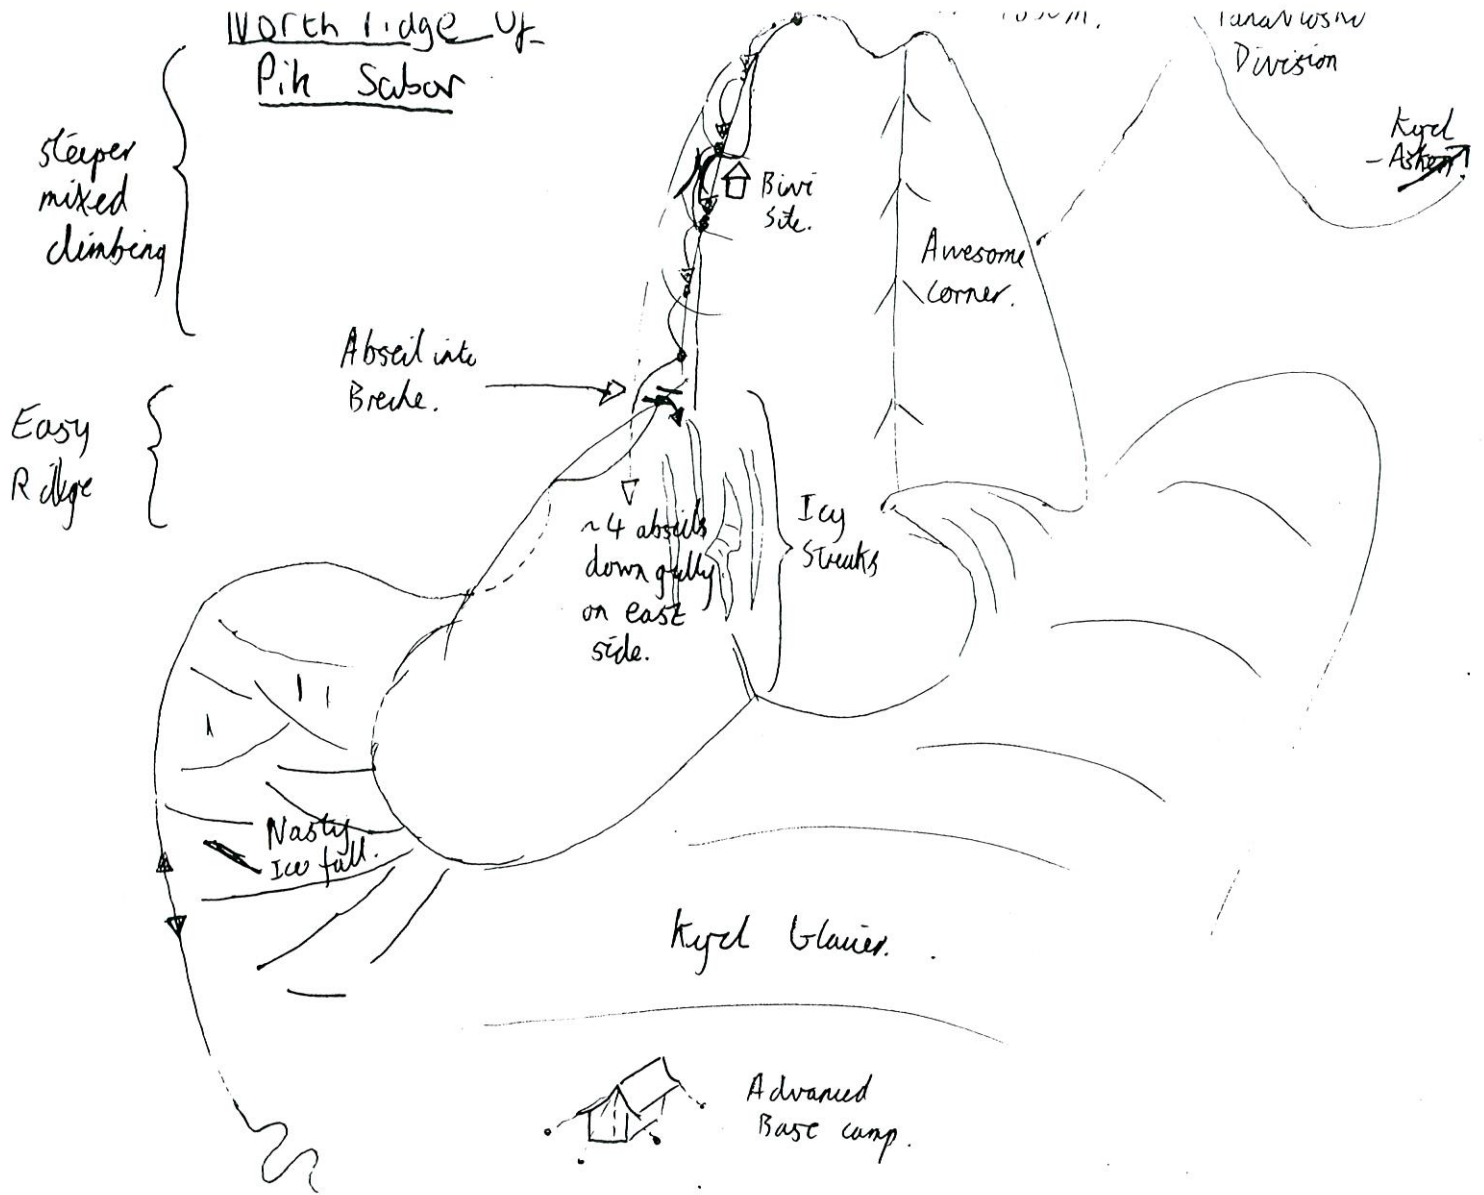 North ridge of
Pik Sabor
Division
Kyzl
Asker!
steeper
mixed
climbing
Bivi
site.
Awesome
corner.
Abseil into
Breche.
Easy
Ridge
Icy
Streaks
~4 abseils
down gully
on east
side.
Nasty
Ice fall.
Kyzl Glacier.
Advanced
Base camp.